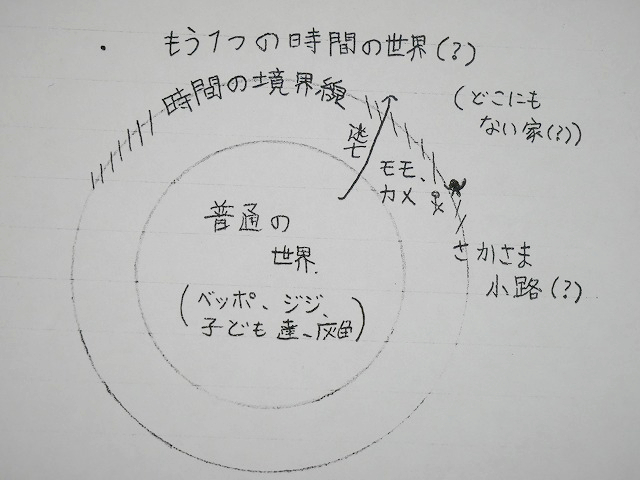 ・もう1つの時間の世界(?)
時間の境界線
(どこにも
ない家(?))
逃亡
モモ、
カメ
さかさま
小路(?)
普通の
世界.
(ベッポ、ジジ、
子ども達、灰色)